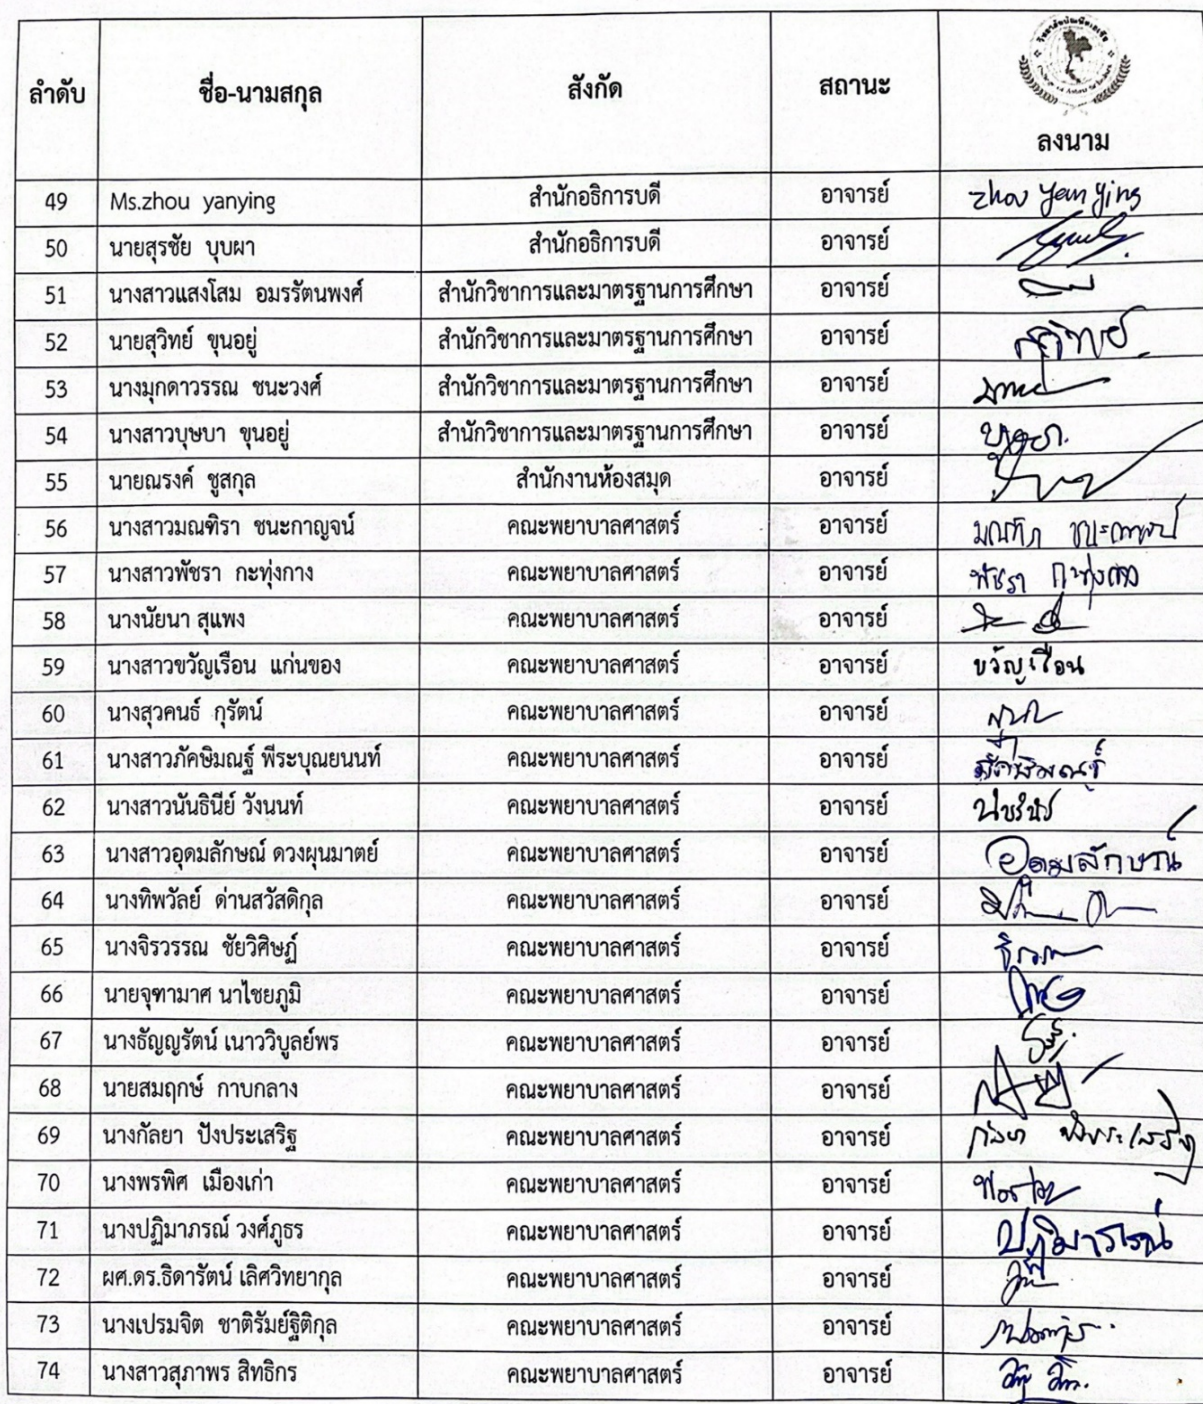 ลำดับ ชื่อ-นามสกุล สังกัด สถานะ ลงนาม
49 Ms.zhou yanying สำนักอธิการบดี อาจารย์ zhou yanying
50 นายสุรชัย บุบผา สำนักอธิการบดี อาจารย์
51 นางสาวแสงโสม อมรรัตนพงศ์ สำนักวิชาการและมาตรฐานการศึกษา อาจารย์
52 นายสุวิทย์ ขุนอยู่ สำนักวิชาการและมาตรฐานการศึกษา อาจารย์ สุวิทย์
53 นางมุกดาวรรณ ชนะวงศ์ สำนักวิชาการและมาตรฐานการศึกษา อาจารย์
54 นางสาวบุษบา ขุนอยู่ สำนักวิชาการและมาตรฐานการศึกษา อาจารย์
55 นายณรงค์ ชูสกุล สำนักงานห้องสมุด อาจารย์
56 นางสาวมณฑิรา ชนะกาญจน์ คณะพยาบาลศาสตร์ อาจารย์ มณฑิรา ชนะกาญจน์
57 นางสาวพัชรา กะทุ่งกาง คณะพยาบาลศาสตร์ อาจารย์ พัชรา กะทุ่งกาง
58 นางนัยนา สุแพง คณะพยาบาลศาสตร์ อาจารย์
59 นางสาวขวัญเรือน แก่นของ คณะพยาบาลศาสตร์ อาจารย์ ขวัญเรือน
60 นางสุวคนธ์ กุรัตน์ คณะพยาบาลศาสตร์ อาจารย์
61 นางสาวภัคษิมณฐ์ พีระบุณยนนท์ คณะพยาบาลศาสตร์ อาจารย์
62 นางสาวนันธินีย์ วังนนท์ คณะพยาบาลศาสตร์ อาจารย์
63 นางสาวอุดมลักษณ์ ดวงผุนมาตย์ คณะพยาบาลศาสตร์ อาจารย์ อุดมลักษณ์
64 นางทิพวัลย์ ด่านสวัสดิกุล คณะพยาบาลศาสตร์ อาจารย์
65 นางจิรวรรณ ชัยวิศิษฏ์ คณะพยาบาลศาสตร์ อาจารย์
66 นายจุฑามาศ นาไชยภูมิ คณะพยาบาลศาสตร์ อาจารย์
67 นางธัญญรัตน์ เนาววิบูลย์พร คณะพยาบาลศาสตร์ อาจารย์
68 นายสมฤกษ์ กาบกลาง คณะพยาบาลศาสตร์ อาจารย์
69 นางกัลยา ปังประเสริฐ คณะพยาบาลศาสตร์ อาจารย์ กัลยา ปังประเสริฐ
70 นางพรพิศ เมืองเก่า คณะพยาบาลศาสตร์ อาจารย์
71 นางปฏิมาภรณ์ วงศ์ภูธร คณะพยาบาลศาสตร์ อาจารย์ ปฏิมาภรณ์
72 ผศ.ดร.ธิดารัตน์ เลิศวิทยากุล คณะพยาบาลศาสตร์ อาจารย์
73 นางเปรมจิต ชาติรัมย์ฐิติกุล คณะพยาบาลศาสตร์ อาจารย์
74 นางสาวสุภาพร สิทธิกร คณะพยาบาลศาสตร์ อาจารย์